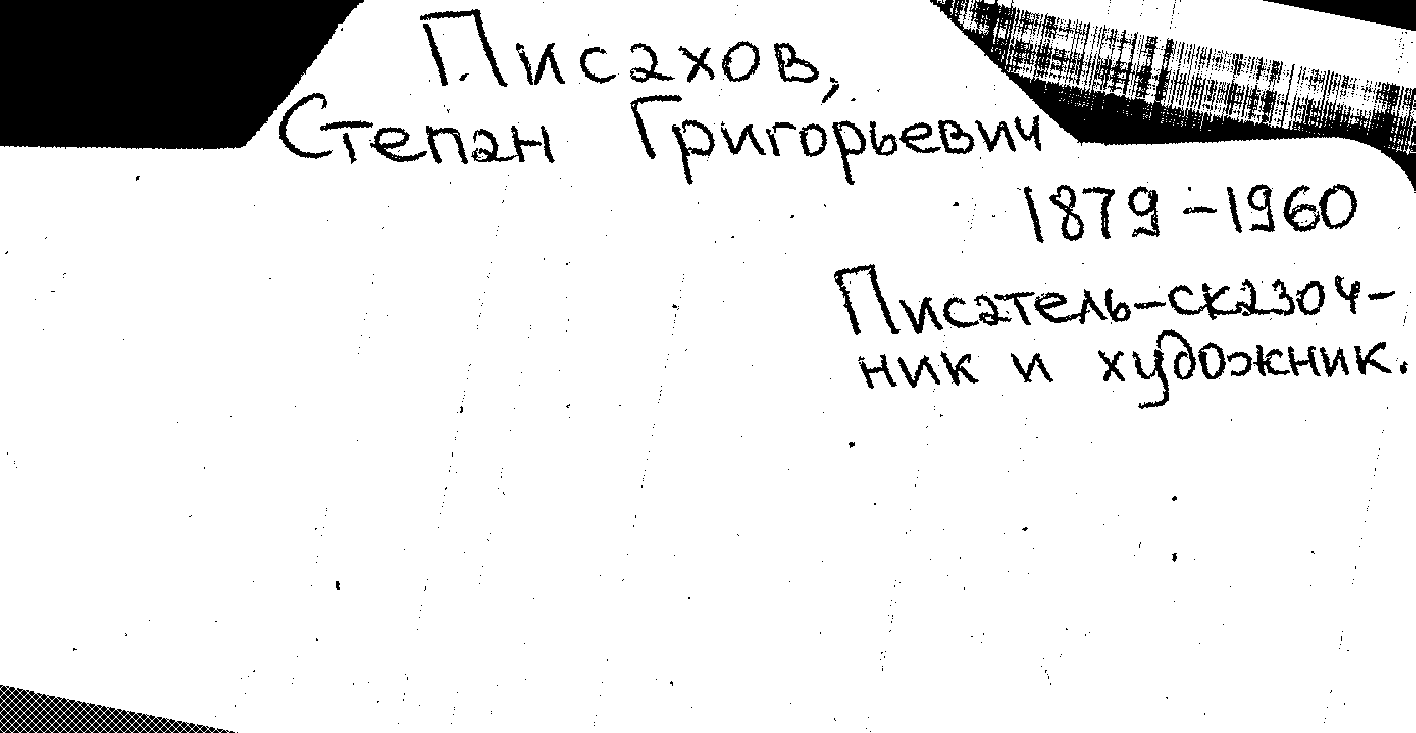 Писахов,
Степан Григорьевич
1879-1960
Писатель-сказоч-
ник и художник.